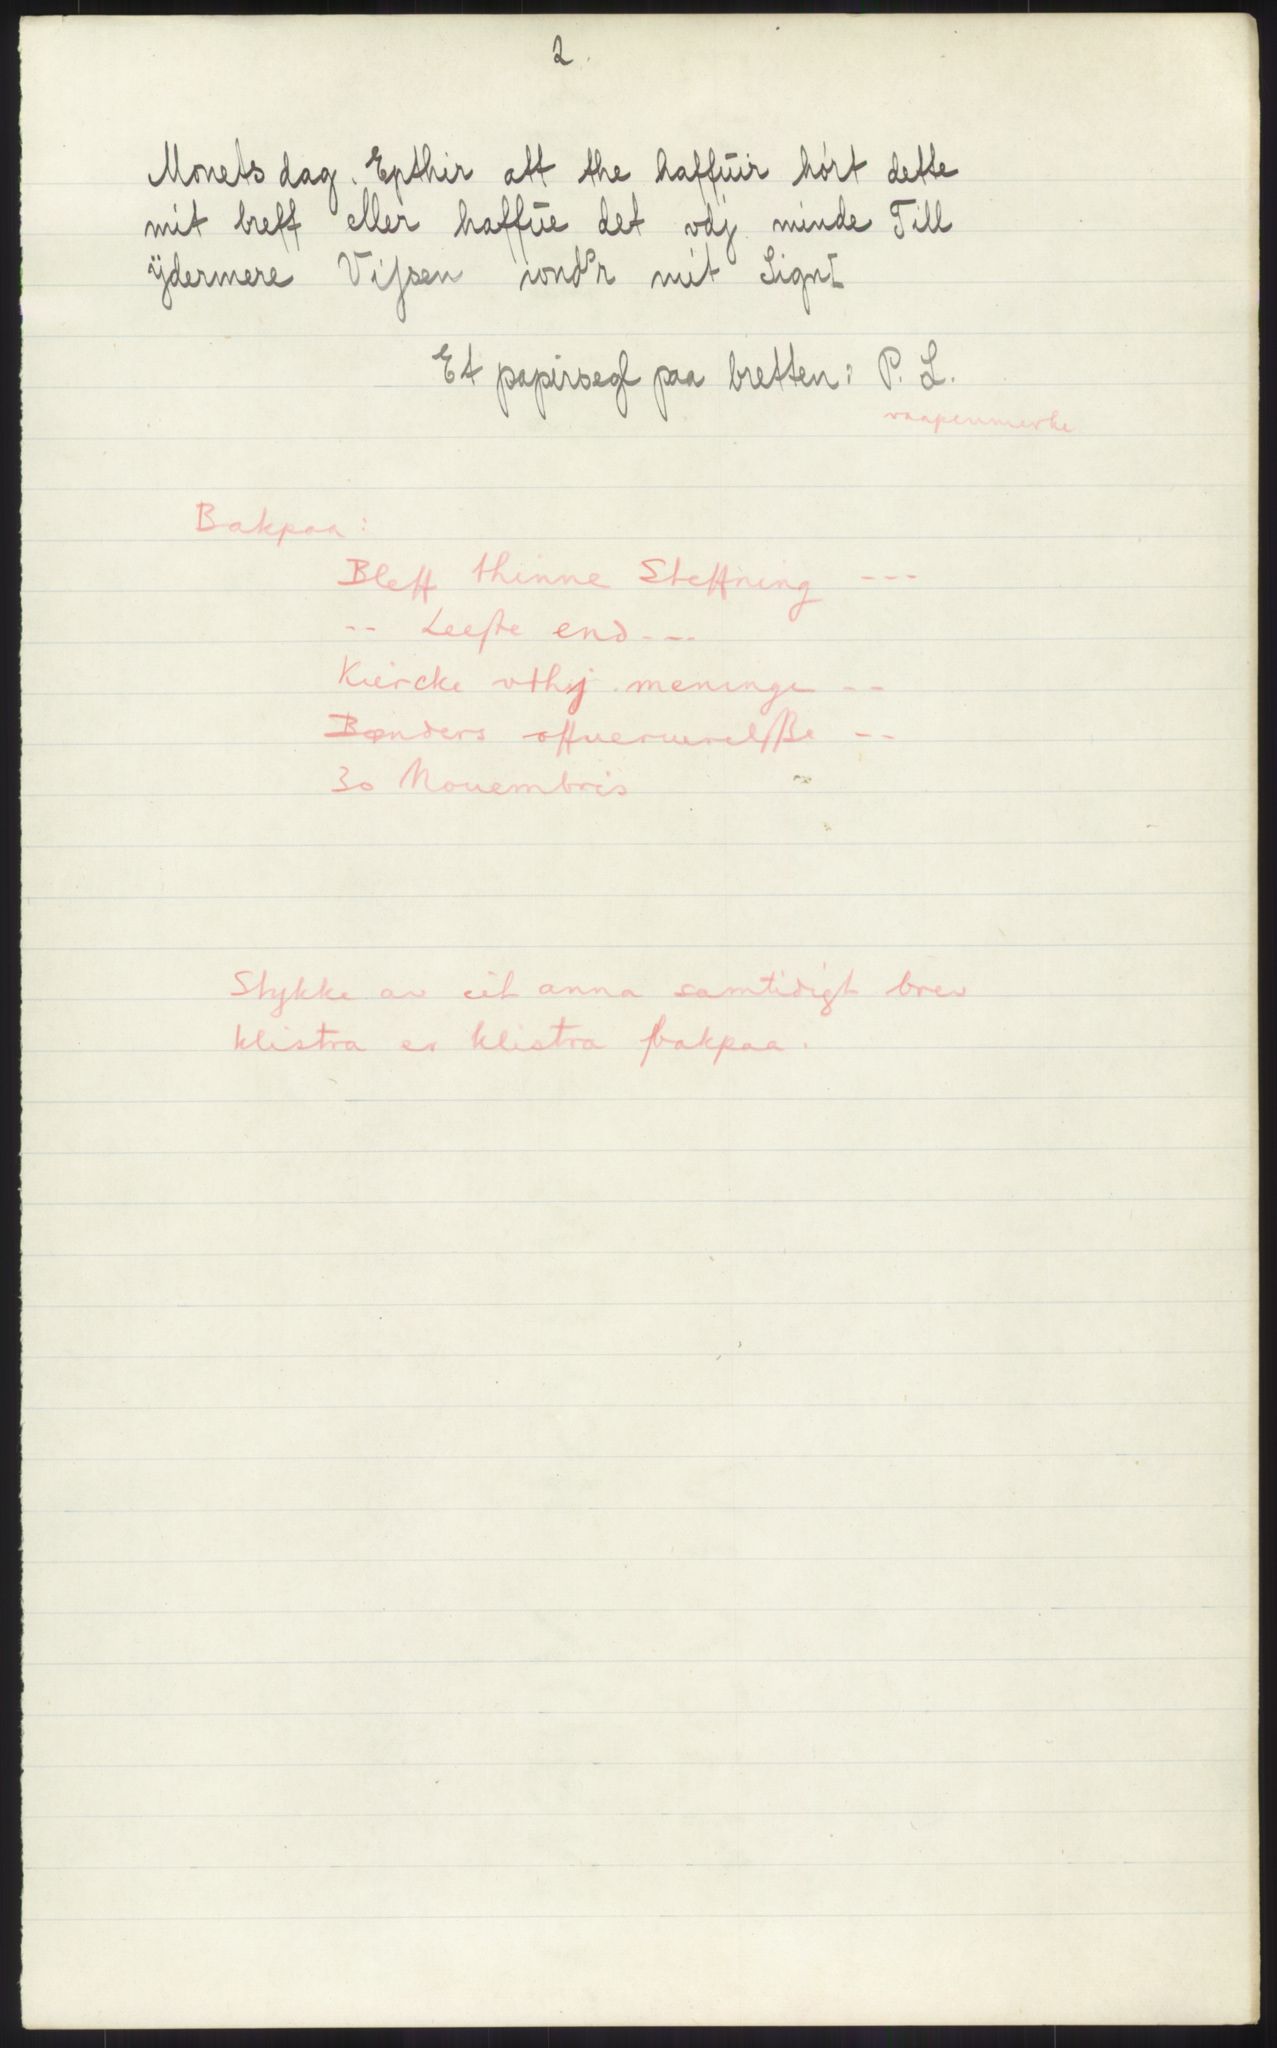 2.
Monets dag. Epthir att the haffuir hórt dette
mit breff eller haffue det vdj minde Till
ÿdermere Vissen vond'r mit Sign
Et papirsegl paa bretten: P. L.
vaapenmerke
Bakpaa:
Bleff thinne Steffning ---
-- Leeste end ---
Kiercke vthj meninge --
Bønders offueruerelsse --
30 Nouembris
Stykke av eit anna samtidigt brev
klistra er klistra bakpaa.